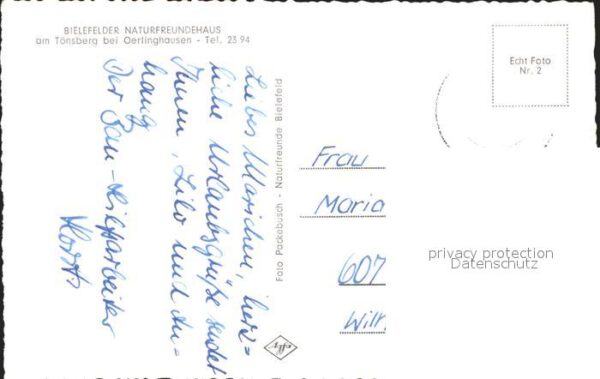 BIELEFELDER NATURFREUNDEHAUS
am Tönsberg bei Oerlinghausen - Tel. 23 94
Liebes Mariechen, herz=
liche Urlaubsgrüße sendet
Ihnen, Lilo und An=
hang
Der Bau-Hilfsarbeiter
Horst
Foto Packebusch - Naturfreunde Bielefeld
Agfa
Echt Foto
Nr. 2
Frau
Maria
607
Wilh
privacy protection
Datenschutz